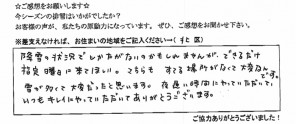 ☆ご感想をお願いします☆
今シーズンの排雪はいかがでしたか?
お客様の声が、私たちの原動力になっています。ぜひ、ご感想をお聞かせ下さい。
※差支えなければ、お住まいの地域をご記入ください→( 北 区)
降雪の状況でしかたがないかもしれませんが、できるだけ
指定曜日に来てほしい。こちらも すてる場所がなくて大変なんです。
雪が多くて大変だったと思います。夜遅い時間にやっていただいて、
いつもキレイにやっていただいてありがとうございます。
ご協力ありがとうございました!